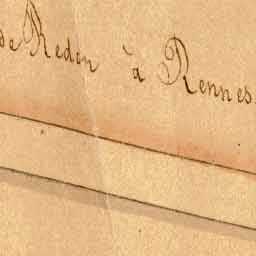 de Redon à Rennes.